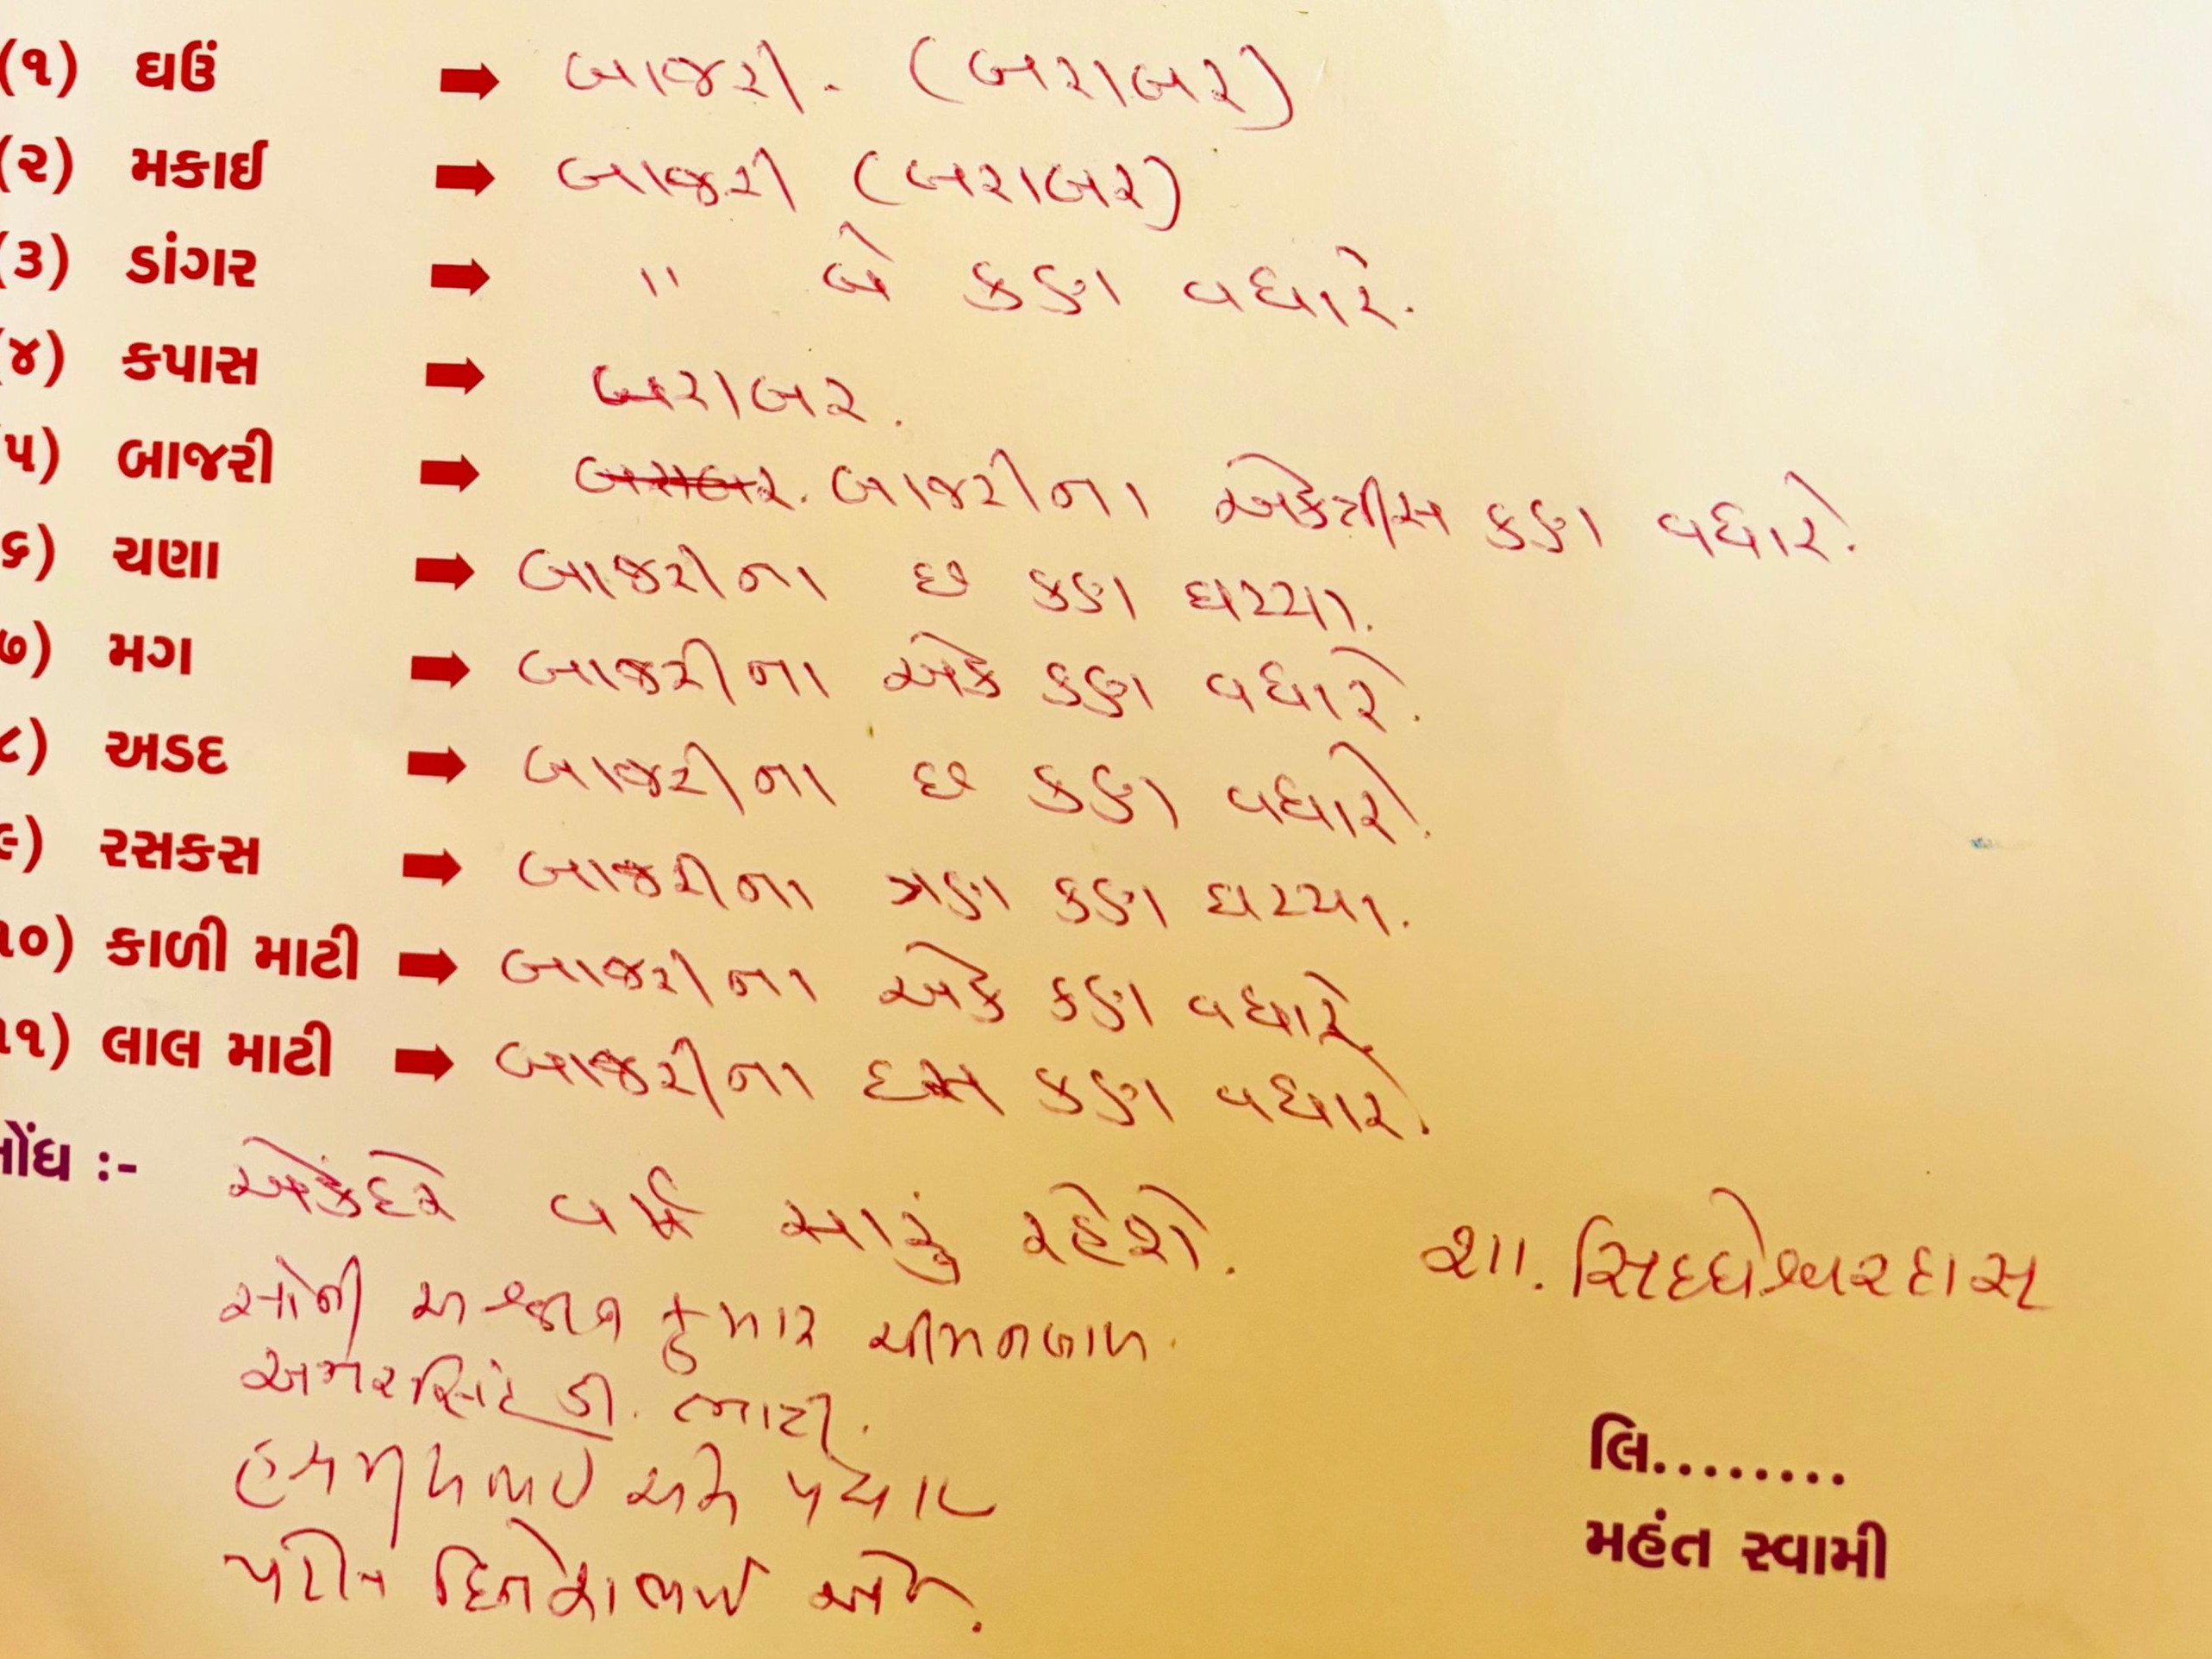 (૧) ઘઉં ➡ બાજરી. (બરાબર)
(૨) મકાઈ ➡ બાજરી (બરાબર)
(૩) ડાંગર ➡ " બે કણ વધારે.
(૪) કપાસ ➡ બરાબર.
૫) બાજરી ➡ બરાબર. બાજરીના એકત્રીસ કણ વધારે.
૬) ચણા ➡ બાજરીના છ કણ ઘટ્યા.
૭) મગ ➡ બાજરીના એક કણ વધારે.
૮) અડદ ➡ બાજરીના છ કણ વધારે.
૯) રસકસ ➡ બાજરીના ત્રણ કણ ઘટ્યા.
૧૦) કાળી માટી ➡ બાજરીના એક કણ વધારે
૧૧) લાલ માટી ➡ બાજરીના દસ કણ વધારે.
નોંધ :- એકંદરે વર્ષ સારું રહેશે.
શા. સિધ્ધેશ્વરદાસ
સોની કુમાર ચીમનલાલ.
અમરસિંહ ડી. ભાટી.
હસમુખભાઈ પરમાર
દિનેશભાઈ એમ.
લિ........
મહંત સ્વામી